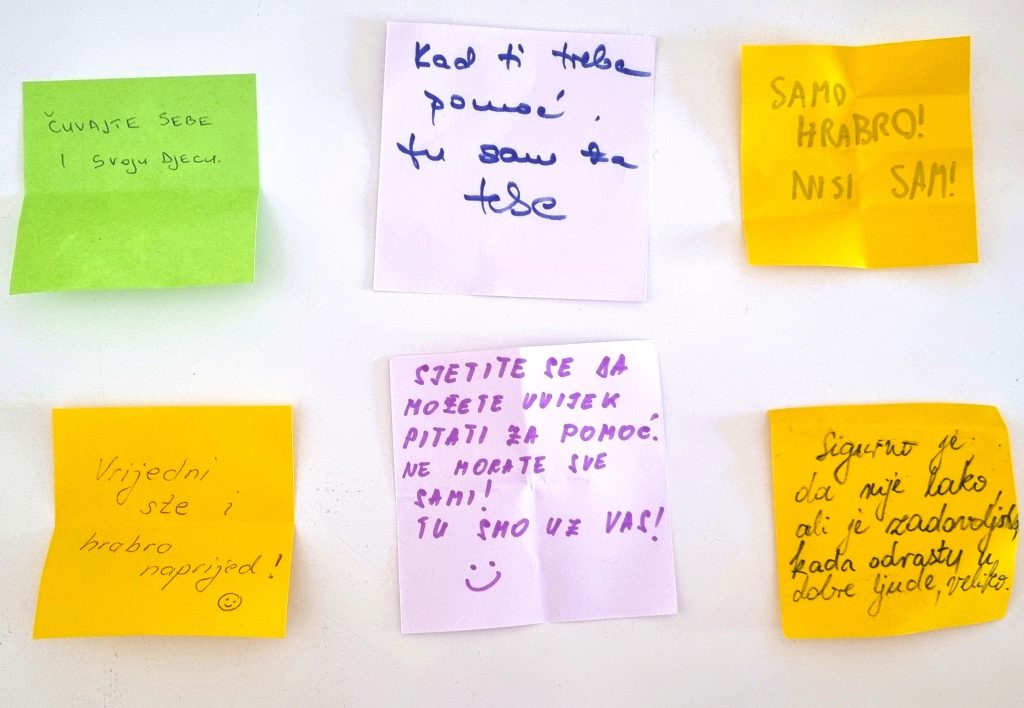 ČUVAJTE SEBE
I SVOJU DJECU.
Kad ti treba
pomoć.
tu sam za
tebe
SAMO
HRABRO!
NISI SAM!
Vrijedni
ste i
hrabro
naprijed!
SJETITE SE DA
MOŽETE UVIJEK
PITATI ZA POMOĆ.
NE MORATE SVE
SAMI!
TU SMO UZ VAS!
Sigurno je,
da nije lako,
ali je zadovoljstvo,
kada odrastu u
dobre ljude, veliko.